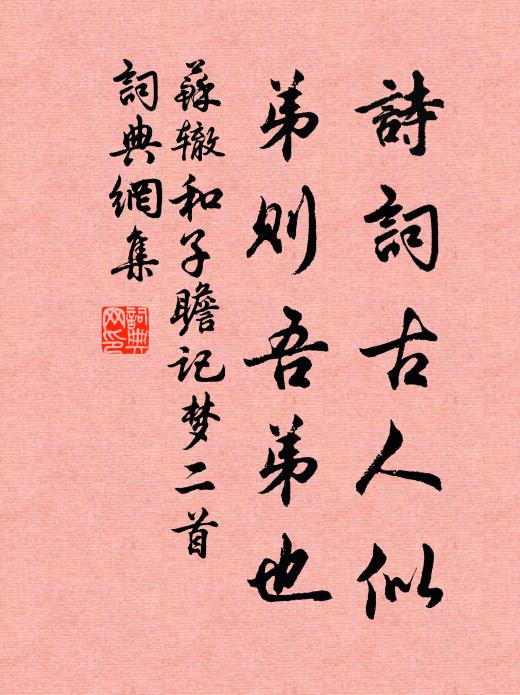 詩詞古人似
弟则吾弟也
蘇辙和子瞻记梦二首
詞典網集
詞典网印